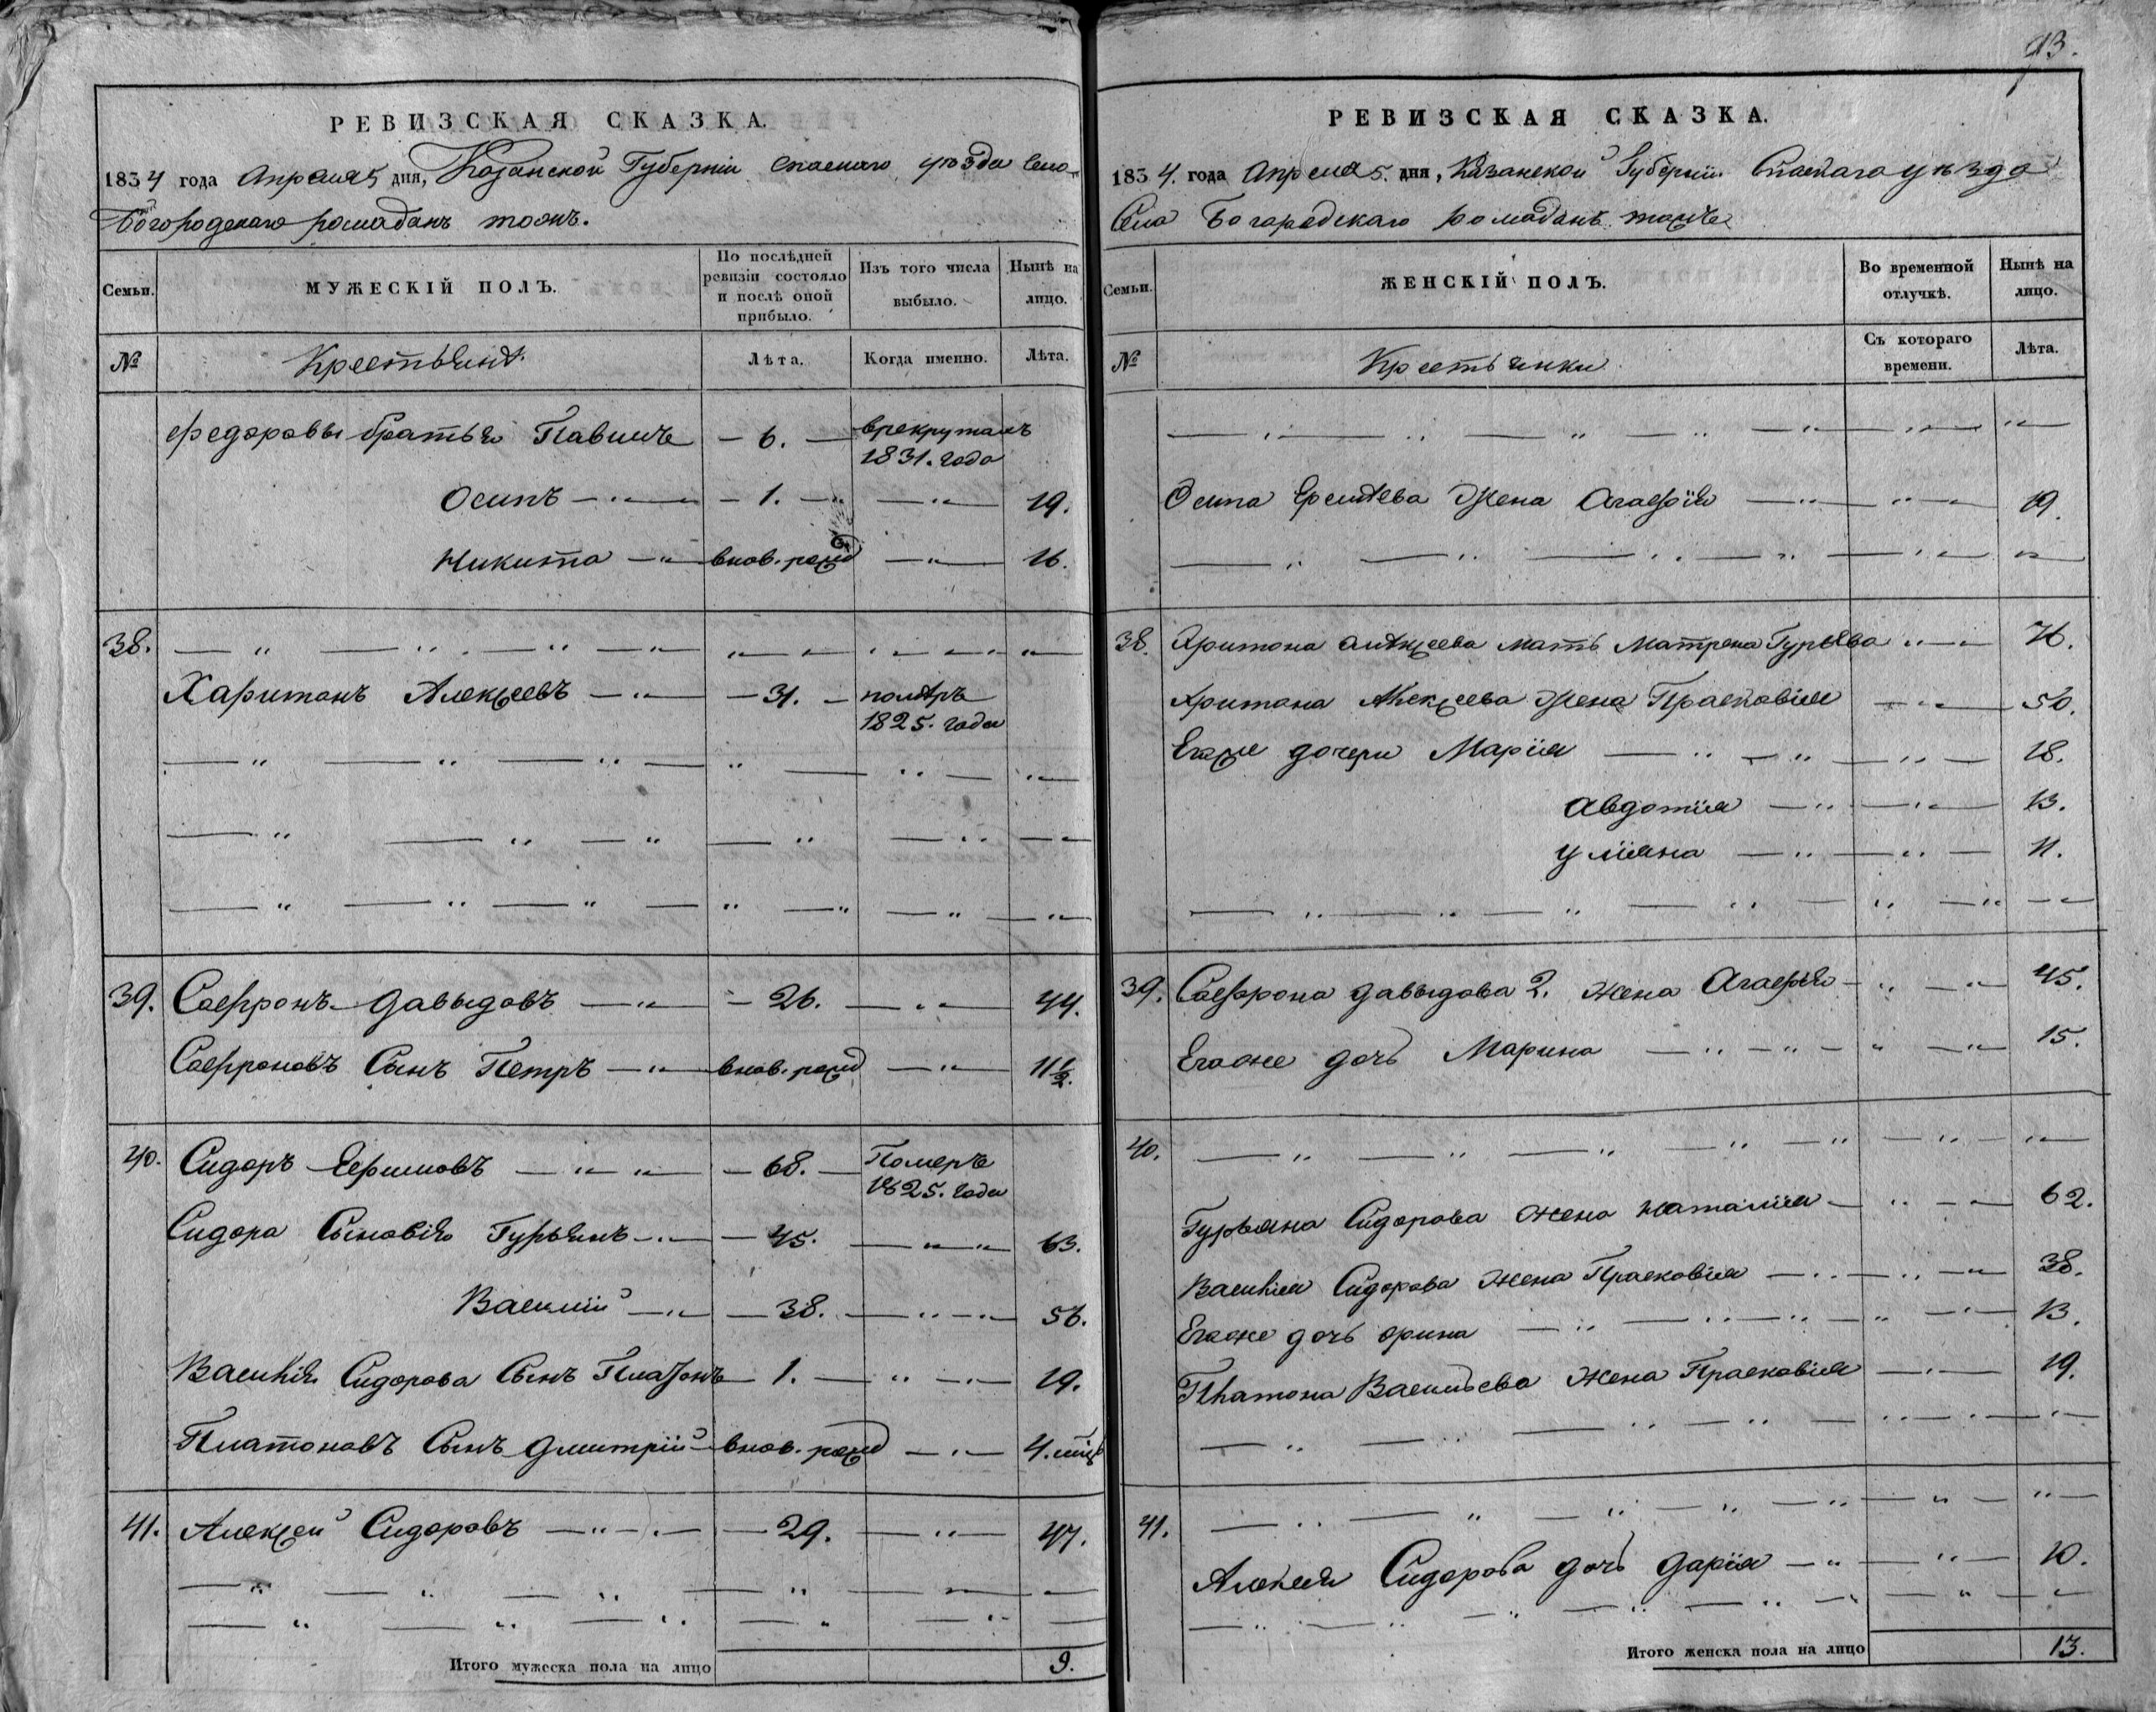 РЕВИЗСКАЯ СКАЗКА.
1834 года Апреля 5 дня, Казанской Губернии Спаскаго уѣзда Села
Богородскаго рамаданъ тожъ.
Семьи.
МУЖЕСКІЙ ПОЛЪ.
По послѣдней ревизіи состояло и послѣ оной прибыло.
Изъ того числа выбыло.
Нынѣ на лицо.
№ Крестьянѣ. Лѣта. Когда именно. Лѣта.
Федоровы братья Павилъ — 6. — врекрутахъ
1831. года
Осипъ — 1. — 19.
Никита — внов. рожд — 16.
38.
Харитонъ Алексѣевъ — 31. — помѣръ
1825. года
39. Сафронъ Давыдовъ — 26. — 44.
Сафроновъ Сынъ Петръ — внов. рожд — 11 1/2.
40. Сидоръ Ефимовъ — 68. — Померъ
1825. года
Сидора Сыновія Гурьянъ — 45. — 63.
Василий — 38. — 56.
Василія Сидорова Сынъ Платонъ — 1. — 19.
Платоновъ Сынъ Дмитрий — внов. рожд — 4. мца
41. Алексѣй Сидоровъ — 29. — 47.
Итого мужеска пола на лицо 9.
93.
РЕВИЗСКАЯ СКАЗКА.
1834. года Апреля 5. дня, Казанской Губернии Спаскаго уѣзда
Села Богарадскаго рамаданъ тожъ
Семьи.
ЖЕНСКІЙ ПОЛЪ.
Во временной отлучкѣ.
Нынѣ на лицо.
№ Крестьянки Съ котораго времени. Лѣта.
Осипа Жена Агафія — 19.
38. Хритона Алѣксеева мать Матрена Гурьева — 76.
Хритона Алексеева Жена Прасковія — 50.
Егоже дочери Марія — 18.
Авдотия — 13.
Улияна — 11.
39. Сафрона Давыдова 2. жена Агафья — 45.
Егоже дочь Марина — 15.
40.
Гурьяна Сидорова жена наталия — 62.
Василия Сидорова жена Прасковия — 38.
Егоже дочь орина — 13.
Платона Васильева жена Прасковия — 19.
41.
Алексѣя Сидорова дочь Дарія — 10.
Итого женска пола на лицо 13.